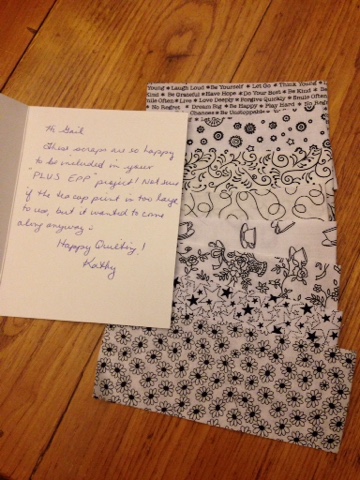 Hi Gail
These scraps are so happy
to be included in your
"PLUS EPP" project! Not sure
if the tea cup print is too large
to use, but it wanted to come
along anyway.
Happy Quilting!
Kathy
Young * Laugh Loud * Be Yourself * Let Go * Think Young *
Kind * Be Grateful * Have Hope * Do Your Best * Be Kind * Be
Smile Often * Live * Love Deeply * Forgive Quickly * Smile Often
* No Regret * Dream Big * Be Happy * Play Hard * No Regret
Chances * Be Unstoppable